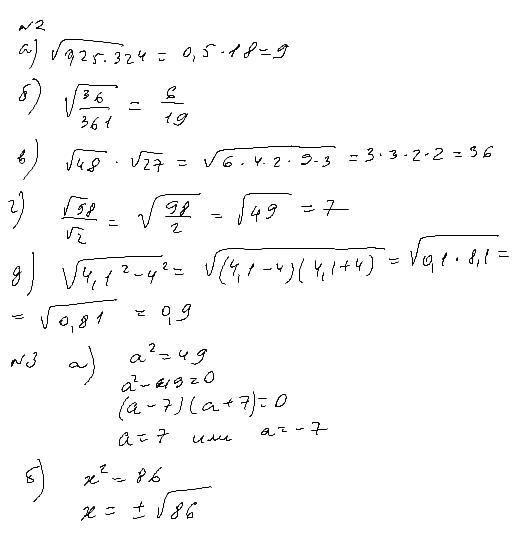 №2
а) √0,25·324 = 0,5·18=9
б) √36/361 = 6/19
в) √48 · √27 = √6·4·2·9·3 = 3·3·2·2 = 36
г) √98/√2 = √98/2 = √49 = 7
д) √4,1²-4² = √(4,1-4)(4,1+4) = √0,1·8,1 =
= √0,81 = 0,9
№3 а) a²=49
a²-49=0
(a-7)(a+7)=0
a=7 или a=-7
б) x²=86
x=±√86